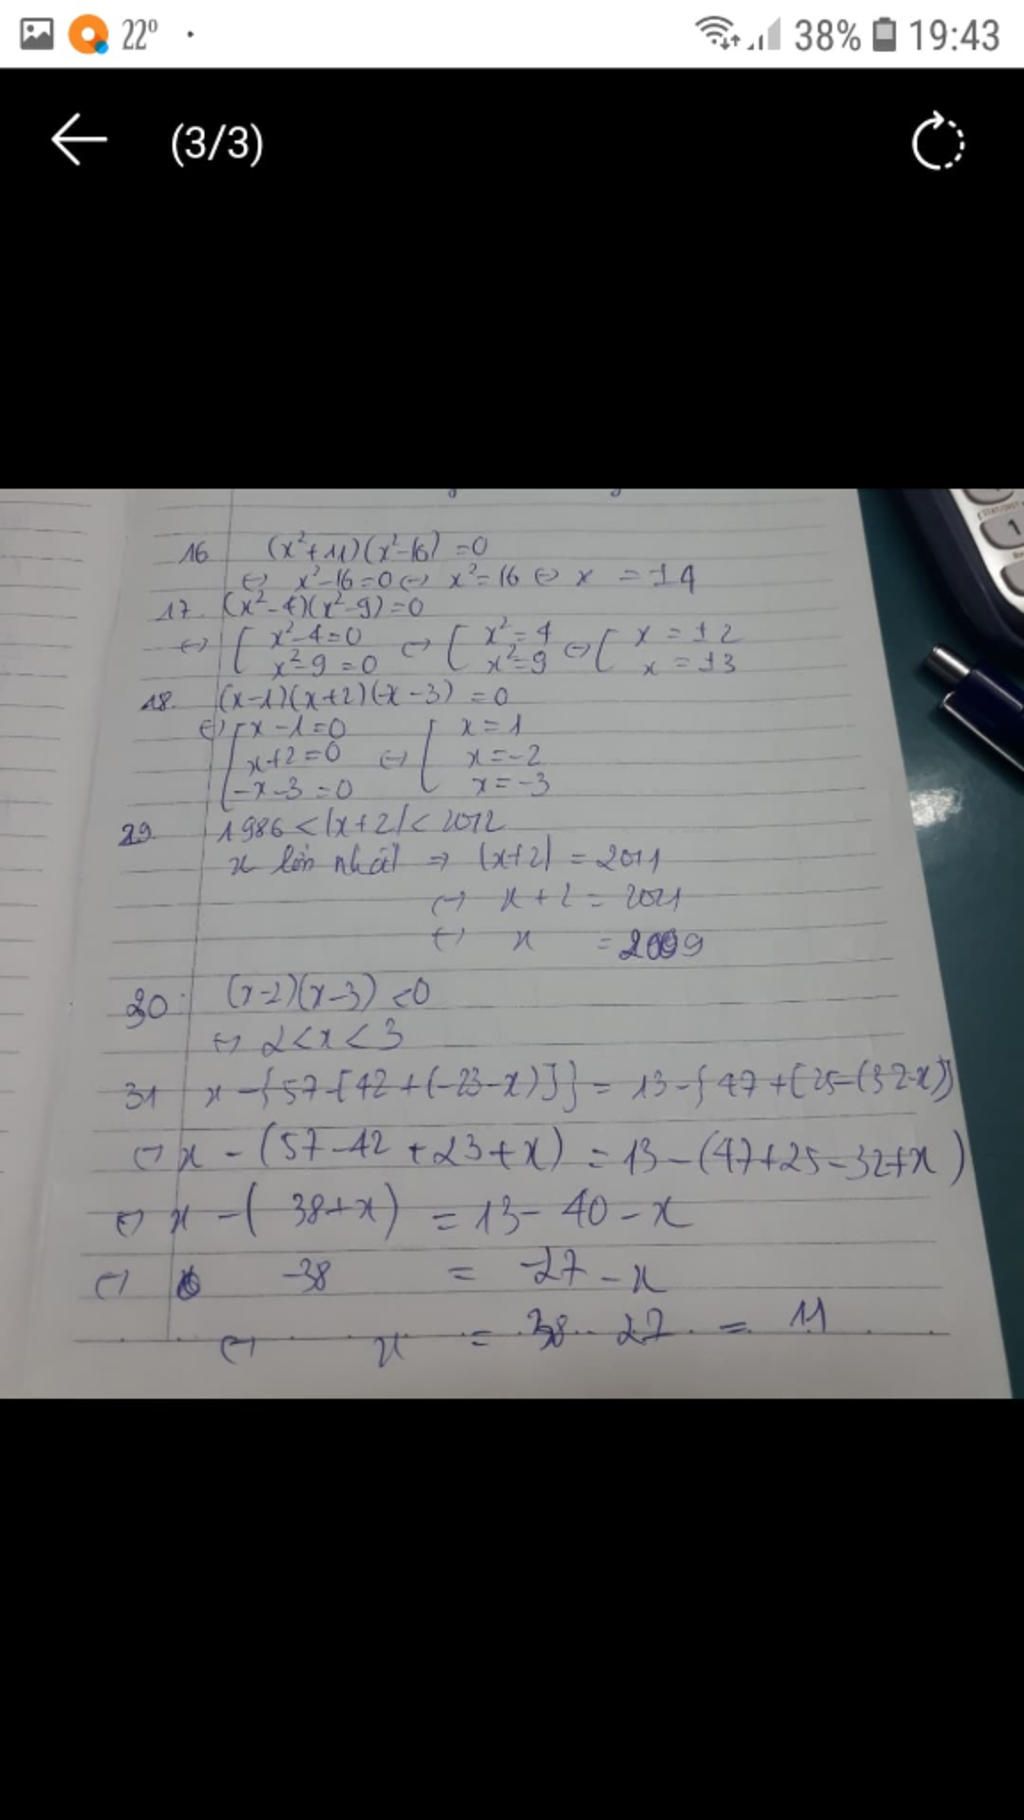 22°
38% 19:43
(3/3)
16 (x²+11)(x²-16) = 0
⇔ x²-16=0 ⇔ x²=16 ⇔ x = ±4
17. (x²-4)(x²-9)=0
⇔ [ x²-4=0 ⇔ [ x²=4 ⇔ [ x = ±2
x²-9=0 x²=9 x = ±3
18. (x-1)(x+2)(-x-3) = 0
⇔ [ x-1=0 [ x=1
x+2=0 ⇔ x=-2
-x-3=0 x=-3
29. 1986 < |x+2| < 2012
x lớn nhất ⇒ |x+2| = 2011
⇔ x+2 = 2011
⇔ x = 2009
30: (x-2)(x-3) <0
⇔ 2<x<3
31 x-{57-[42+(-23-x)]} = 13-{47+[25-(32-x)]}
⇔ x - (57-42+23+x) = 13-(47+25-32+x)
⇔ x - (38+x) = 13-40-x
⇔ -38 = -27-x
⇔ x = 38-27 = 11
1